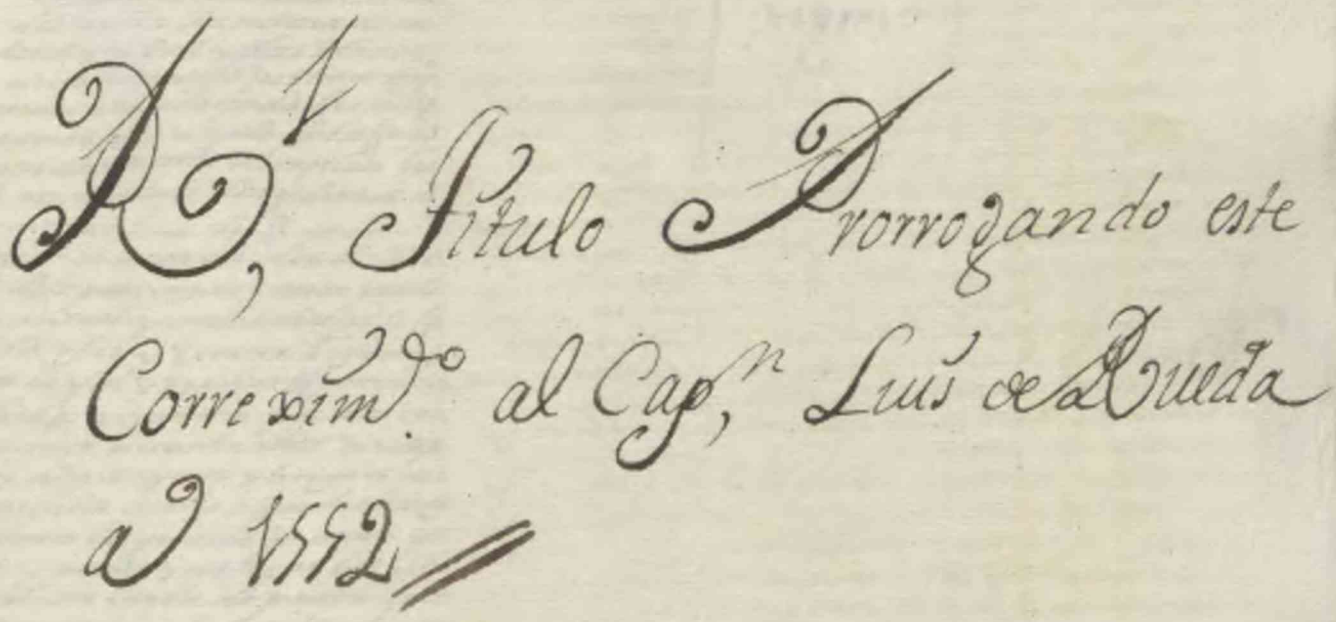 R,l Titulo Prorrogando este
Correxim.do al Cap,n Luis de Rueda
ad 1552